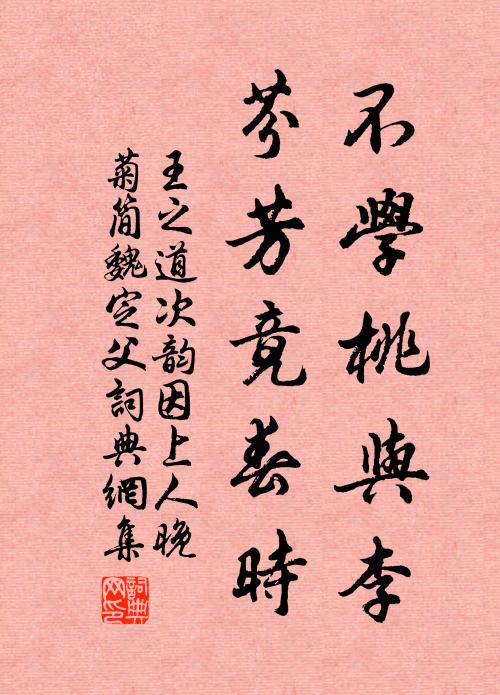 不學桃與李
芬芳竟春時
王之道次韵因上人晚
菊簡魏定父詞典網集
詞典網印